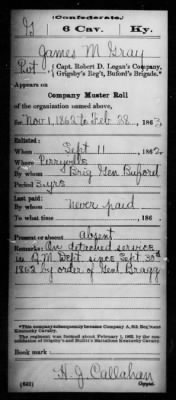 (Confederate.)
G 6 Cav. Ky.
James M. Gray
Pvt, { Capt. Robert D. Logan's Company,
Grigsby's Reg't, Buford's Brigade.*
Appears on
Company Muster Roll
of the organization named above,
for Nov 1, 1862 to Feb 28, 1863.
Enlisted:
When Sept 11, 1862.
Where Perryville
By whom Brig Gen Buford
Period 3 yrs
Last paid:
By whom never paid
To what time , 186 .
Present or absent absent
Remarks: On detached service
in Q.M. Dept. since Sept 30th
1862 by order of Genl Bragg
*This company subsequently became Company G, 6th Reg't
Kentucky Cavalry.
Book mark:
H. J. Callahan
(642) Copyist.